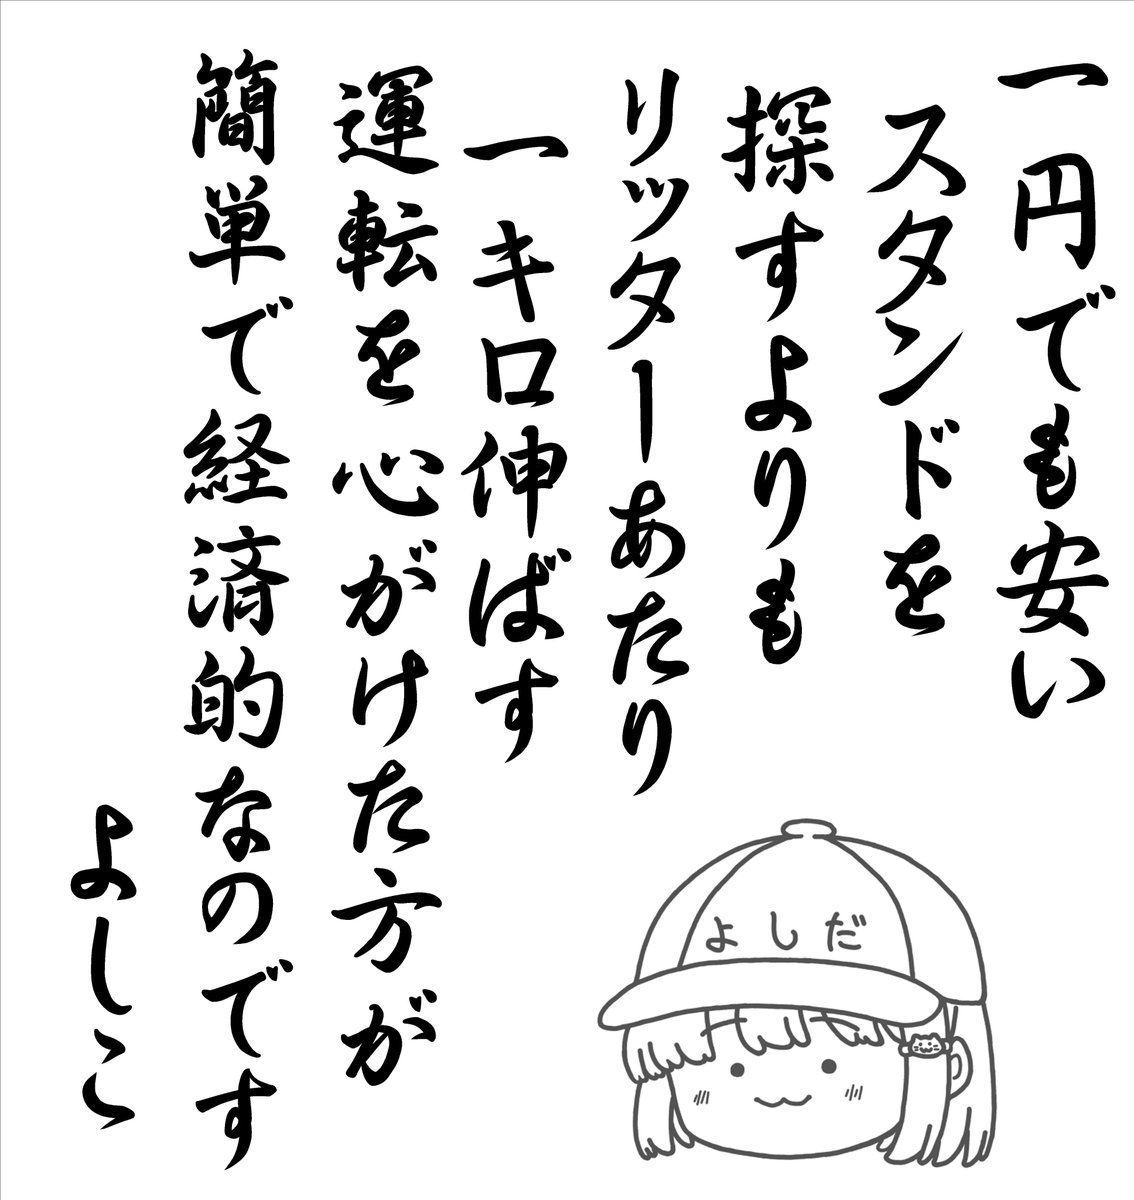 一円でも安い
スタンドを
探すよりも
リッターあたり
一キロ伸ばす
運転を心がけた方が
簡単で経済的なのです
よしこ
よしだ